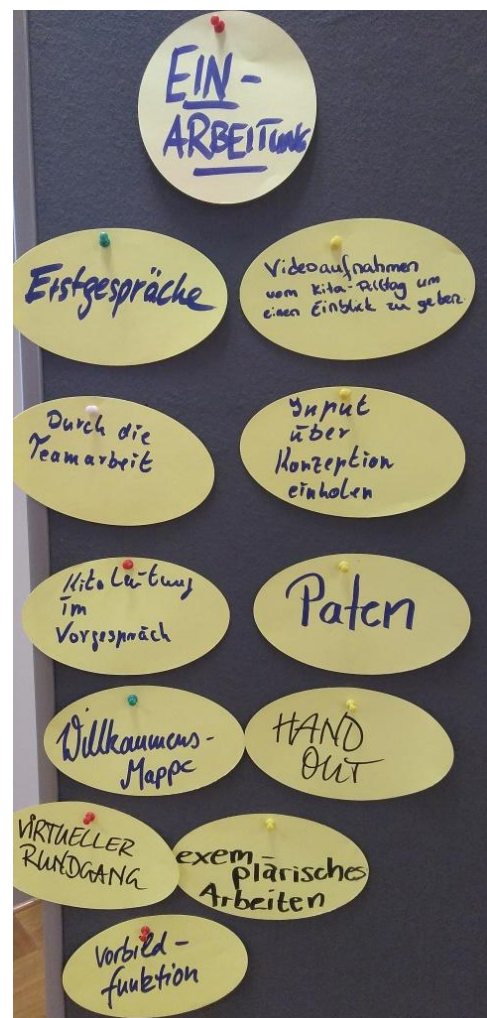 EIN-
ARBEITUNG
Erstgespräche
Videoaufnahmen
vom Kita-Alltag um
einen Einblick zu geben.
Durch die
Teamarbeit
Input
über
Konzeption
einholen
Kita Leitung
im
Vorgespräch
Paten
Willkommens-
Mappe
HAND
OUT
VIRTUELLER
RUNDGANG
exem-
plärisches
Arbeiten
Vorbild-
funktion